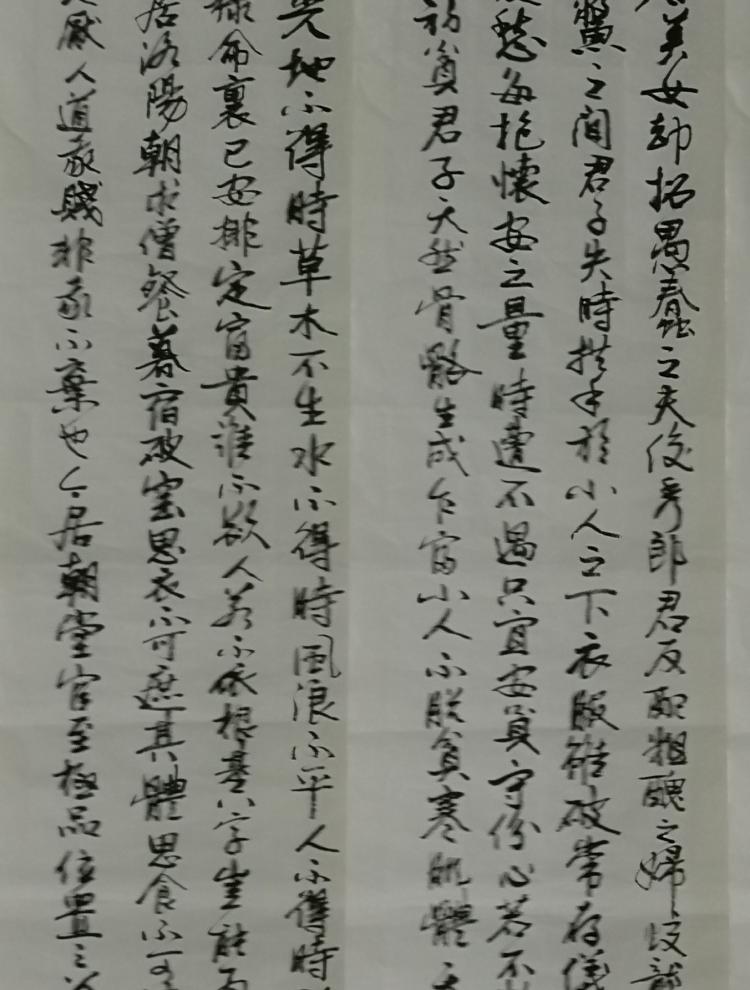 美女却招愚蠢之夫俊秀郎君反配粗醜之婦蛟龍
鱉之間君子失時拱手於小人之下衣服雖破常存儀
愁每抱懷安之量時遭不遇只宜安貧守份心若不
初貧君子天然骨骼生成乍富小人不脫貧寒肌體天
光地不得時草木不生水不得時風浪不平人不得時
祿命裏已安排定富貴誰不欲人若不依根基八字豈能
居洛陽朝求僧餐暮宿破窰思衣不可遮其體思食不可
厭人道我賤非我不棄也今居朝堂官至極品位置三